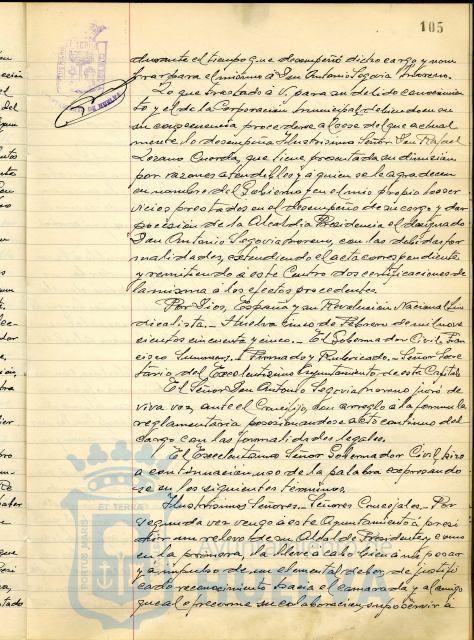 105
durante el tiempo que desempeñó dicho cargo y nom
brar para el mismo a Don Antonio Segovia Moreno.
Lo que traslado a V. para su debido conocimien
to y el de la Corporación Municipal debiendo en
su consecuencia procederse al cese del que actual
mente lo desempeña Ilustrísimo Señor Don Rafael
Lozano Cuerda, que tiene presentada su dimisión
por razones atendibles y a quien se le agradecen
en nombre del Gobierno y en el mío propio los ser
vicios prestados en el desempeño de su cargo y dar
posesión de la Alcaldía Presidencia el designado
Don Antonio Segovia Moreno, con las debidas for
malidades, extendiendo el acta correspondiente
y remitiendo a este Centro dos certificaciones de
la misma a los efectos procedentes.
Por Dios, España y su Revolución Nacional Sin
dicalista. Huelva cinco de Febrero de mil nove
cientos cincuenta y cinco. El Gobernador Civil, Fran
cisco Summers. Firmado y Rubricado. Señor Secre
tario del Excelentísimo Ayuntamiento de esta Capital.
El Señor Don Antonio Segovia Moreno juró de
viva voz, ante el Concejo, con arreglo a la fórmula
reglamentaria posesionándose acto continuo del
cargo con las formalidades legales.
El Excelentísimo Señor Gobernador Civil, hizo
a continuación uso de la palabra expresándo
se en los siguientes términos.
Ilustrísimos Señores. Señores Concejales. Por
segunda vez vengo a este Ayuntamiento a presi
dir un relevo de su Alcalde Presidente y como
en la primera, la llevo a cabo bien a mi pesar
y a impulso de un elemental deber, de justifi
cado reconocimiento hacia el camarada y al amigo
que al ofrecerme su colaboración, supo servir a